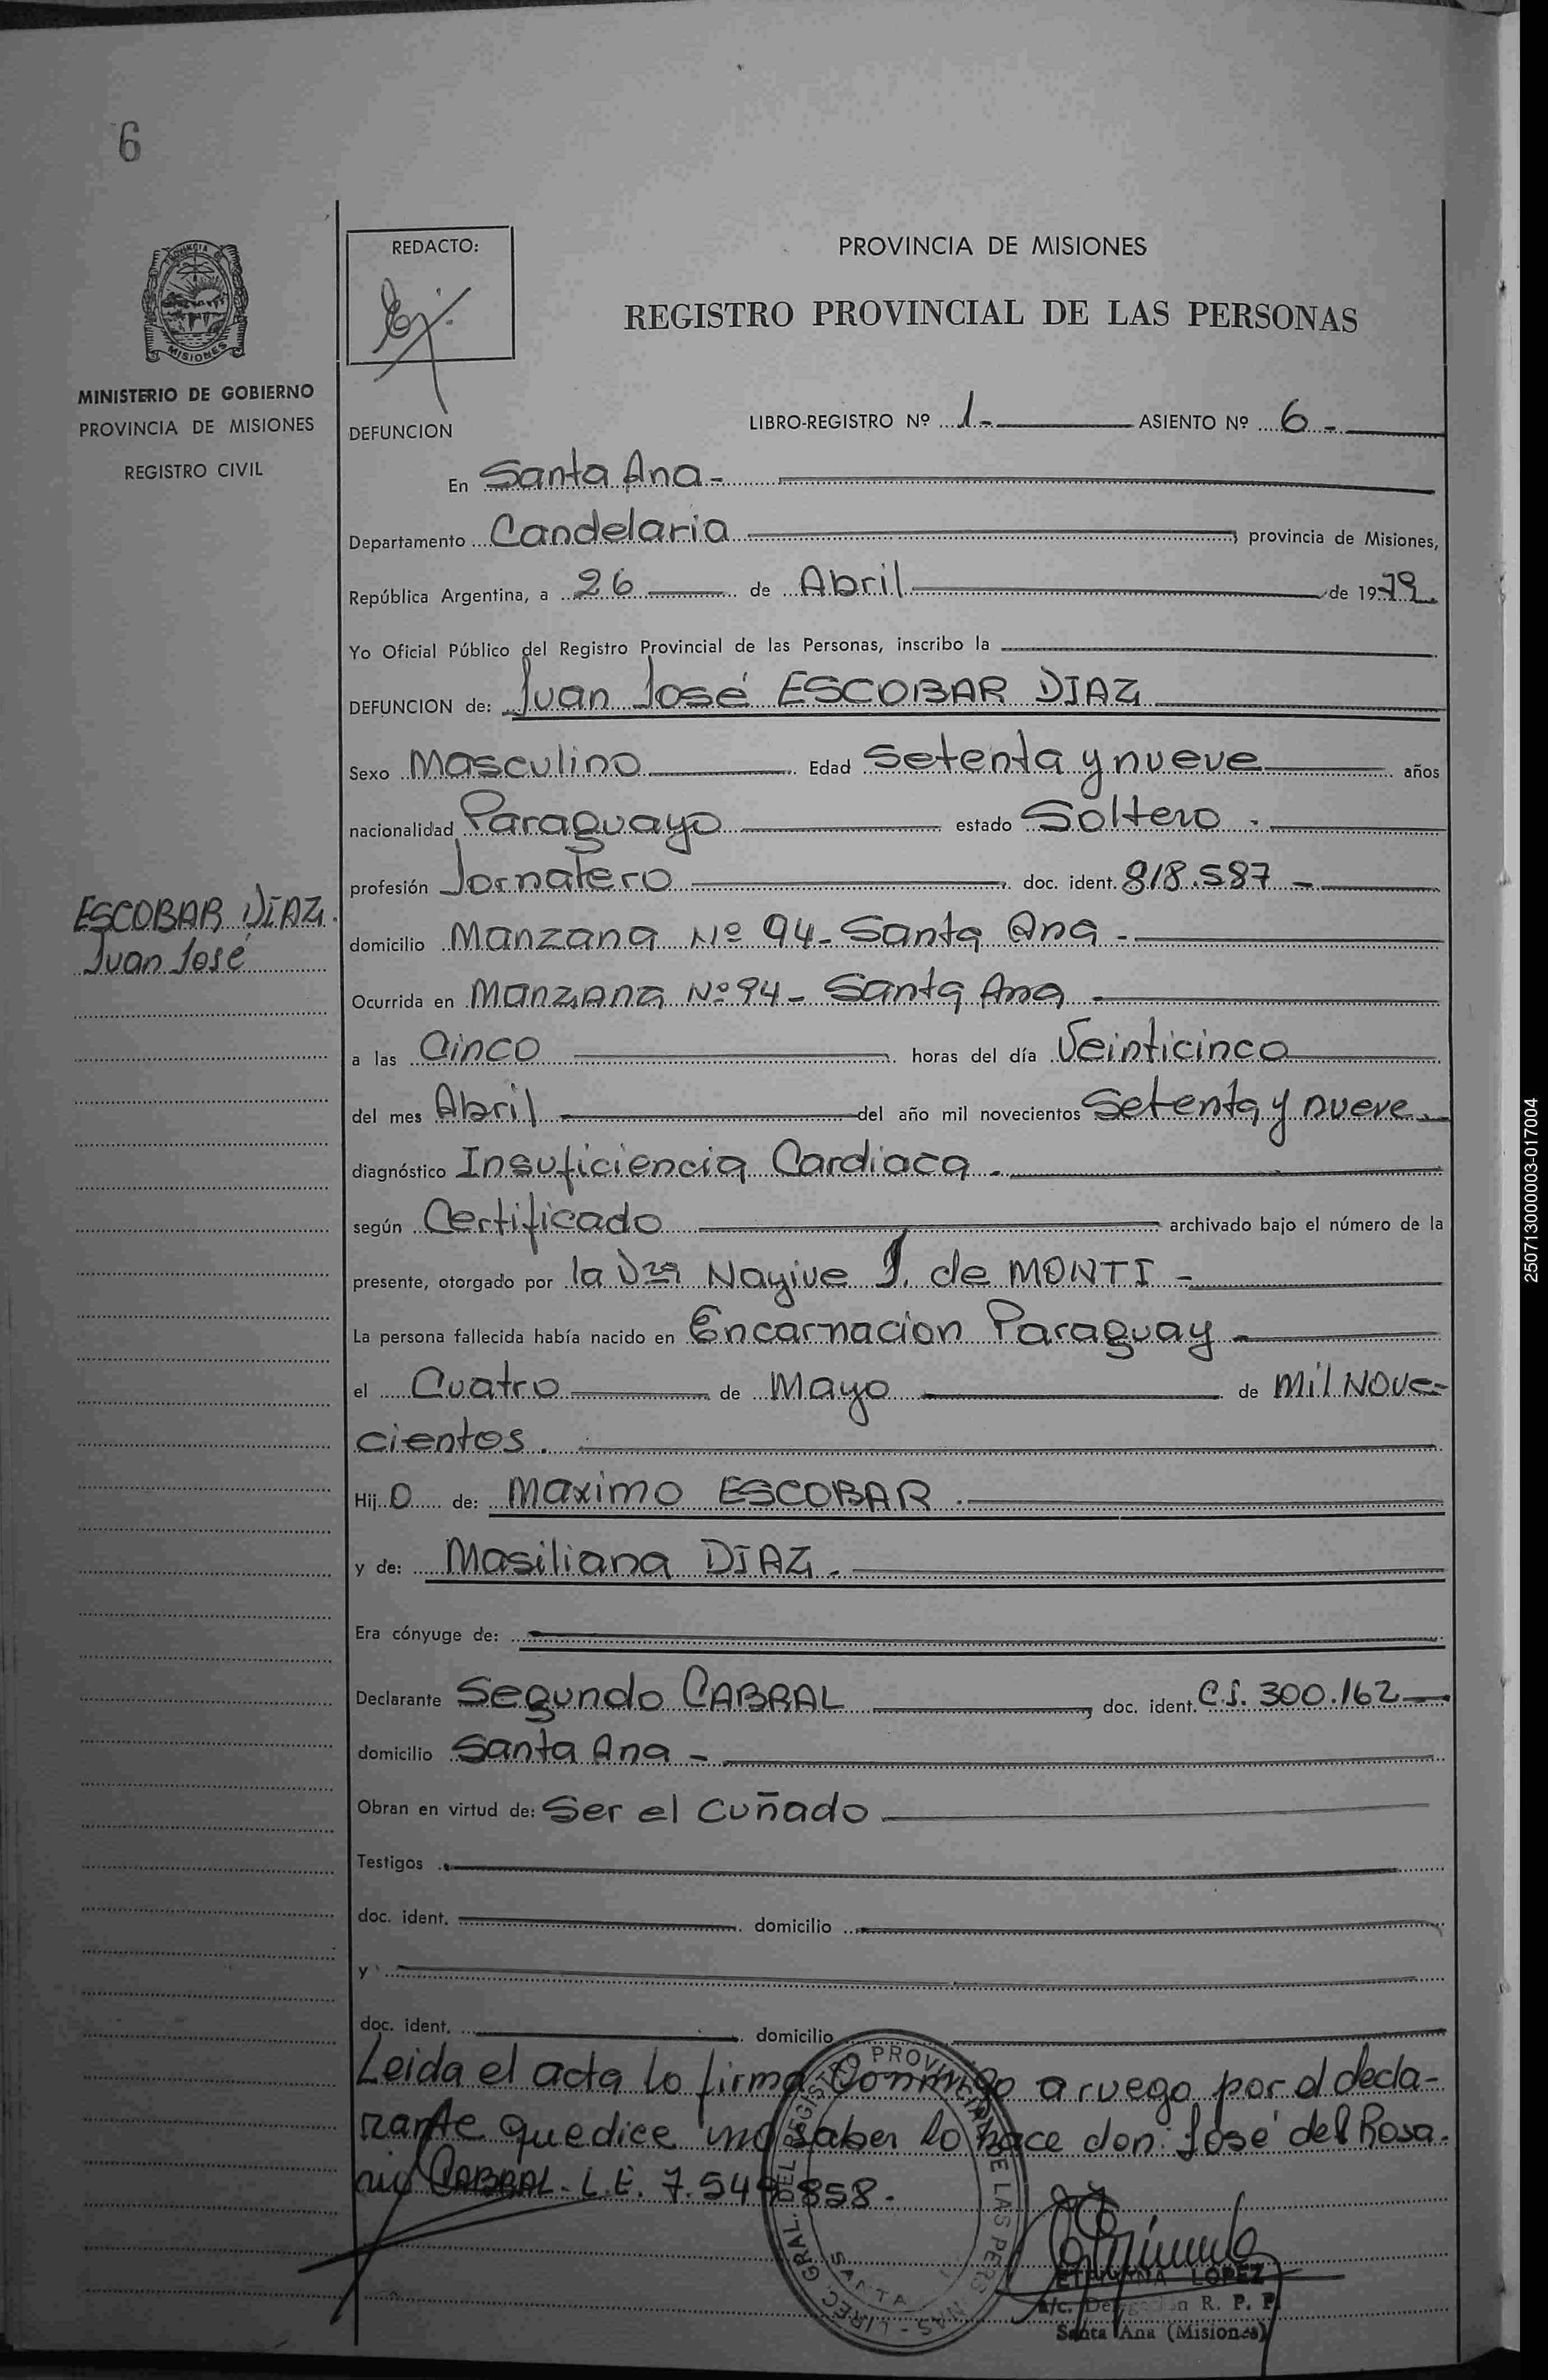 6
PROVINCIA DE
MISIONES
MINISTERIO DE GOBIERNO
PROVINCIA DE MISIONES
REGISTRO CIVIL
REDACTO:
PROVINCIA DE MISIONES
REGISTRO PROVINCIAL DE LAS PERSONAS
DEFUNCION
LIBRO-REGISTRO Nº 1- ASIENTO Nº 6-
En Santa Ana-
Departamento Candelaria, provincia de Misiones,
República Argentina, a 26 de Abril de 1979.
Yo Oficial Público del Registro Provincial de las Personas, inscribo la
DEFUNCION de: Juan José ESCOBAR DIAZ
Sexo Masculino Edad Setenta y nueve años
nacionalidad Paraguayo estado Soltero.
profesión Jornalero doc. ident. 818.587-
ESCOBAR DIAZ.
Juan José
domicilio Manzana Nº 94- Santa Ana-
Ocurrida en Manzana Nº 94- Santa Ana
a las Cinco horas del día Veinticinco
del mes Abril del año mil novecientos Setenta y nueve.
diagnóstico Insuficiencia Cardiaca.
según Certificado archivado bajo el número de la
presente, otorgado por la Dra Nayive J. de MONTI-
La persona fallecida había nacido en Encarnacion Paraguay
el Cuatro de Mayo de Mil Nove-
cientos.
Hij o de: Maximo ESCOBAR.
y de: Masiliana DIAZ.
Era cónyuge de:
Declarante Segundo CABRAL, doc. ident. C.I. 300.162
domicilio Santa Ana-
Obran en virtud de: Ser el cuñado
Testigos
doc. ident. domicilio
y
doc. ident. domicilio
Leida el acta lo firma Conmigo a ruego por el decla-
rante que dice no saber lo hace don José del Rosa-
rio CABRAL- L.E. 7.549.858.
DIREC. GRAL. DEL REGISTRO PROVINCIAL DE LAS PERSONAS
SANTA
LOPEZ
a/c. Delegación R. P. P.
Santa Ana (Misiones)
250713000003-017004